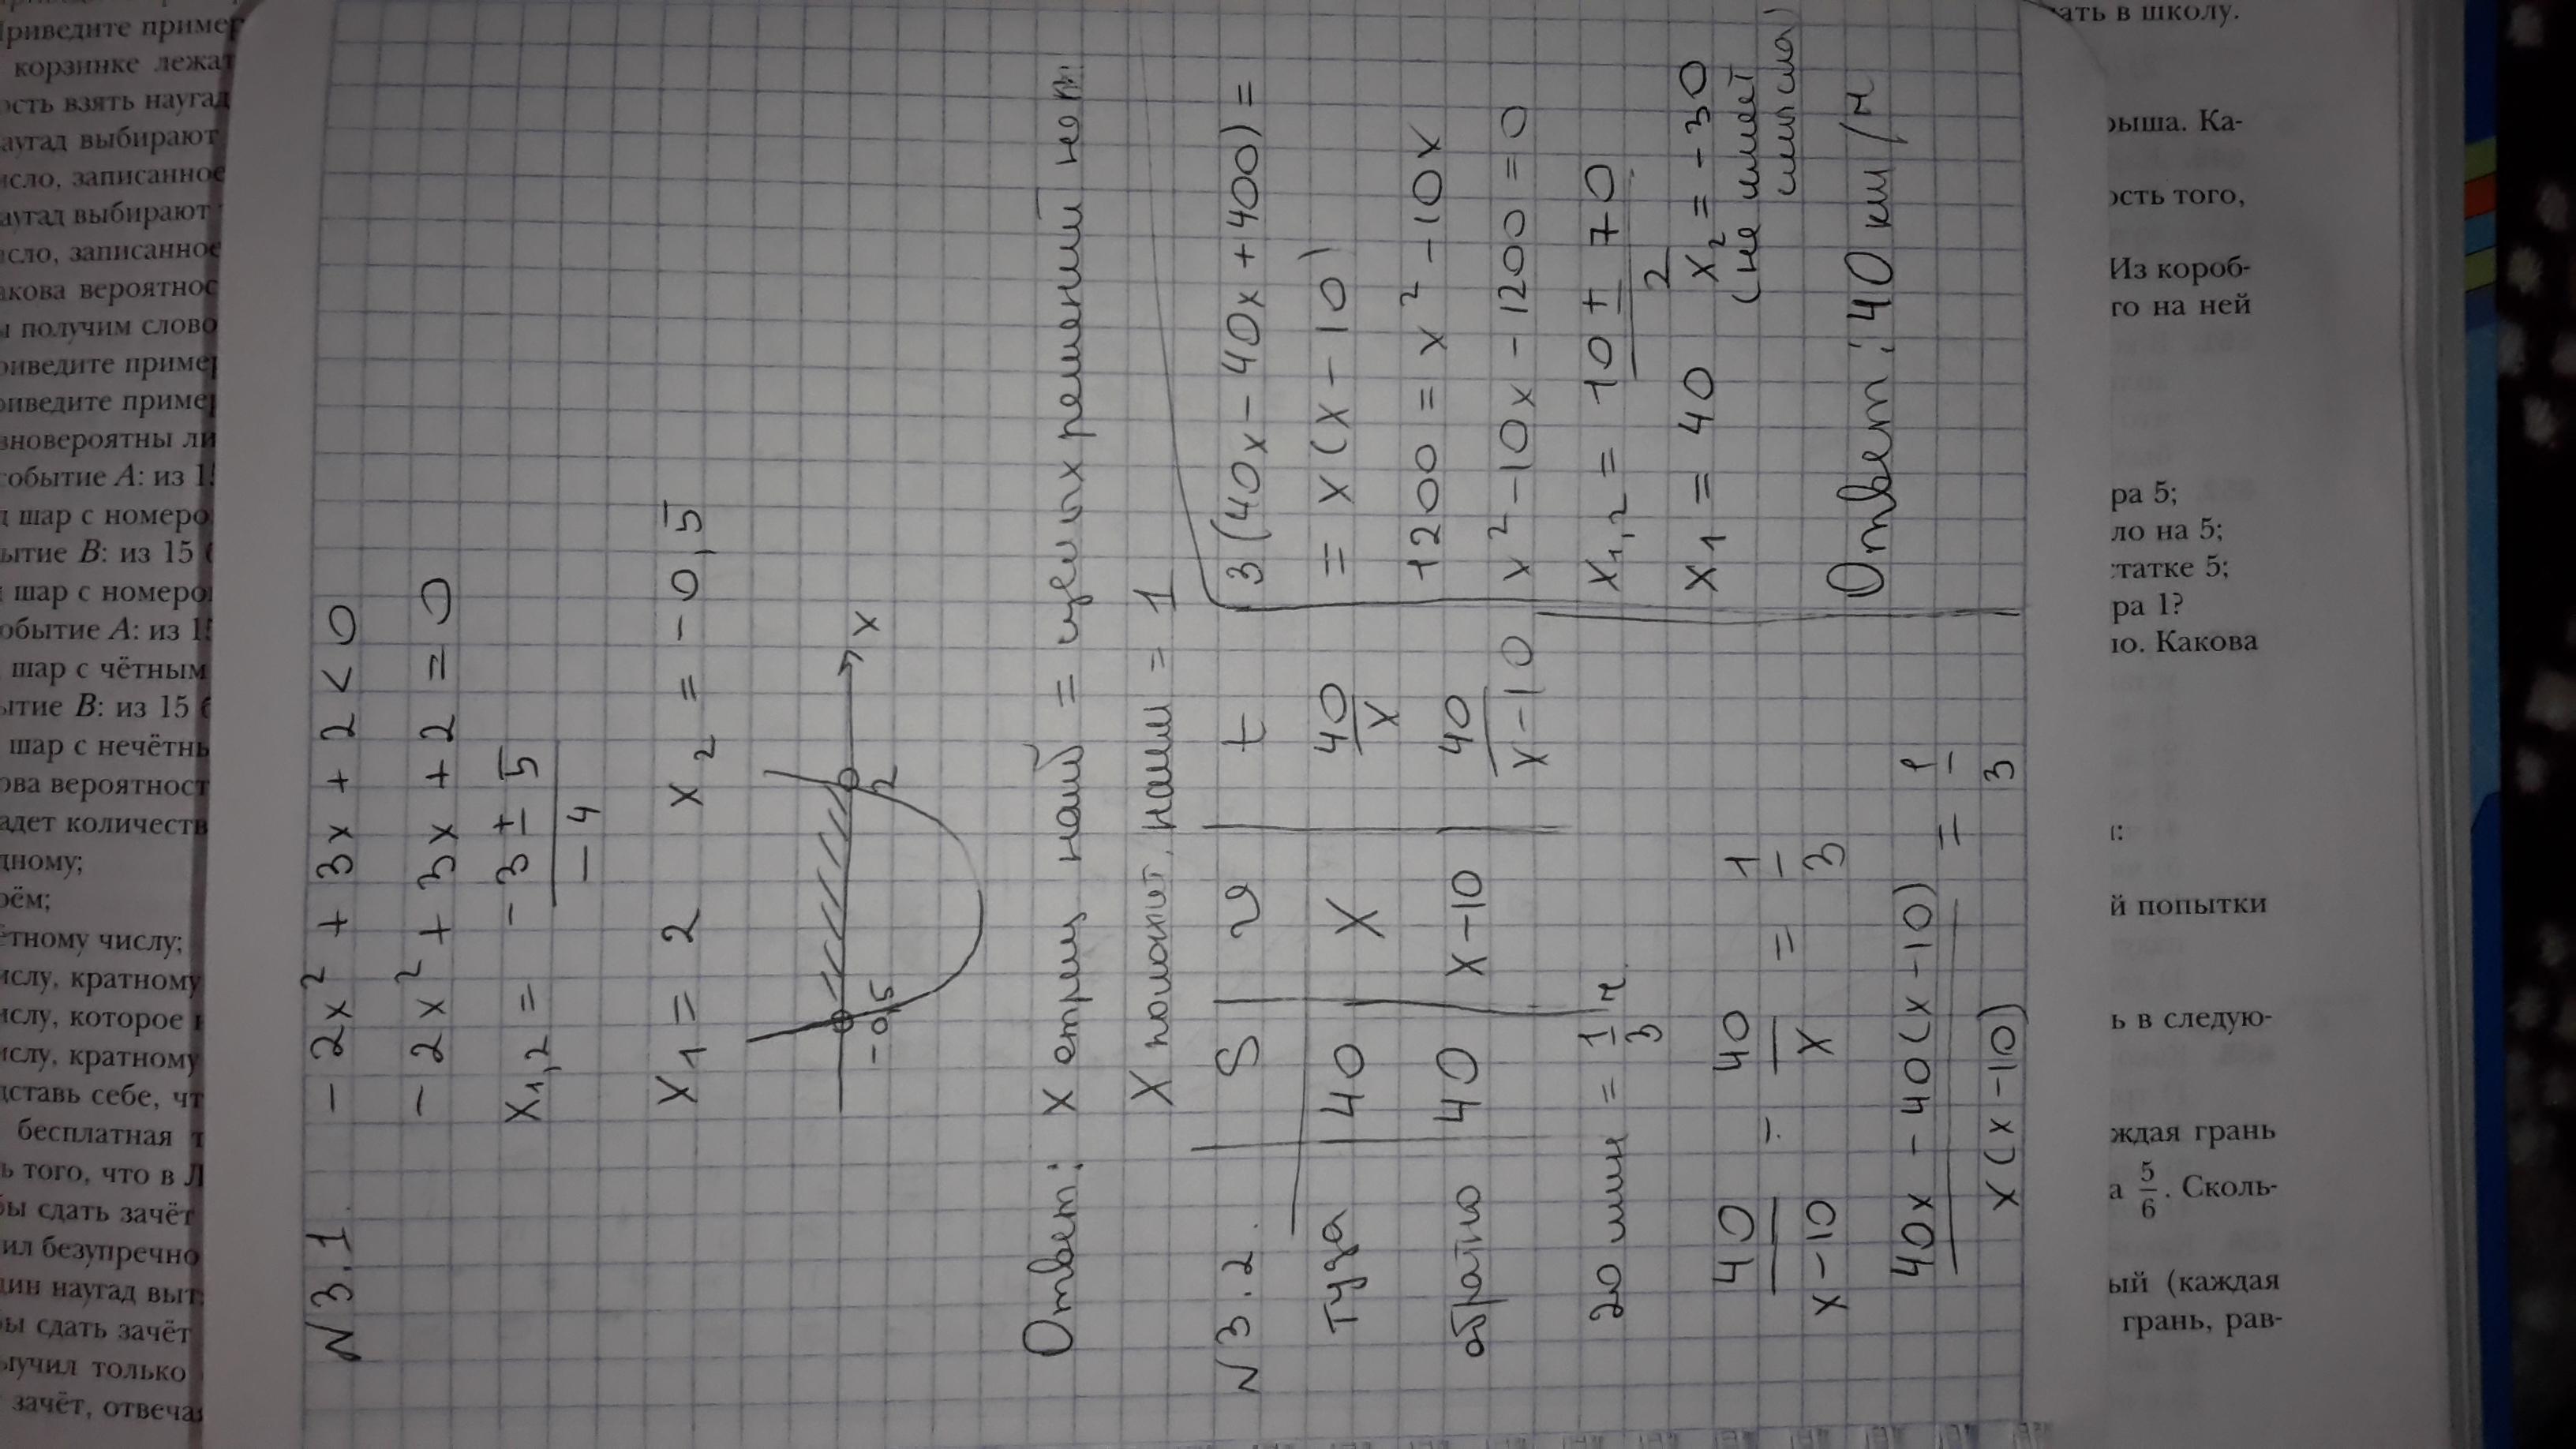 N 3.1.
-2x² + 3x + 2 < 0
-2x² + 3x + 2 = 0
x₁,₂ = (-3 ± 5)/(-4)
x₁ = 2 x₂ = -0,5
-0,5 2 x
Ответ: x отриц наиб = целых решений нет.
x положит, наим = 1
N 3.2.
S v t
туда 40 x 40/x
обратно 40 x-10 40/(x-10)
20 мин = 1/3 ч.
40/(x-10) - 40/x = 1/3
(40x - 40(x-10))/(x(x-10)) = 1/3
3(40x - 40x + 400) =
= x(x - 10)
1200 = x² - 10x
x² - 10x - 1200 = 0
x₁,₂ = (10 ± 70)/2
x₁ = 40 x₂ = -30
(не имеет
смысла)
Ответ: 40 км/ч
Приведите пример
корзинке лежат
ость взять наугад
аугад выбирают
исло, записанное
аугад выбирают
исло, записанное
акова вероятнос
ы получим слово
риведите пример
риведите пример
вновероятны ли
событие A: из 15
д шар с номеро
бытие B: из 15 б
шар с номеро
обытие A: из 15
шар с чётным
ытие B: из 15 б
шар с нечётны
ова вероятност
адет количеств
дному;
рём;
ётному числу;
ислу, кратному
ислу, которое
ислу, кратному
дставь себе, чт
бесплатная т
ь того, что в Л
бы сдать зачёт
ил безупречно
дин наугад выт
бы сдать зачёт
ыучил только
зачёт, отвеча
ать в школу.
рыша. Ка-
ость того,
Из короб-
го на ней
ра 5;
ло на 5;
статке 5;
ра 1?
ю. Какова
й попытки
ь в следую-
ждая грань
а 5/6. Сколь-
ый (каждая
грань, рав-